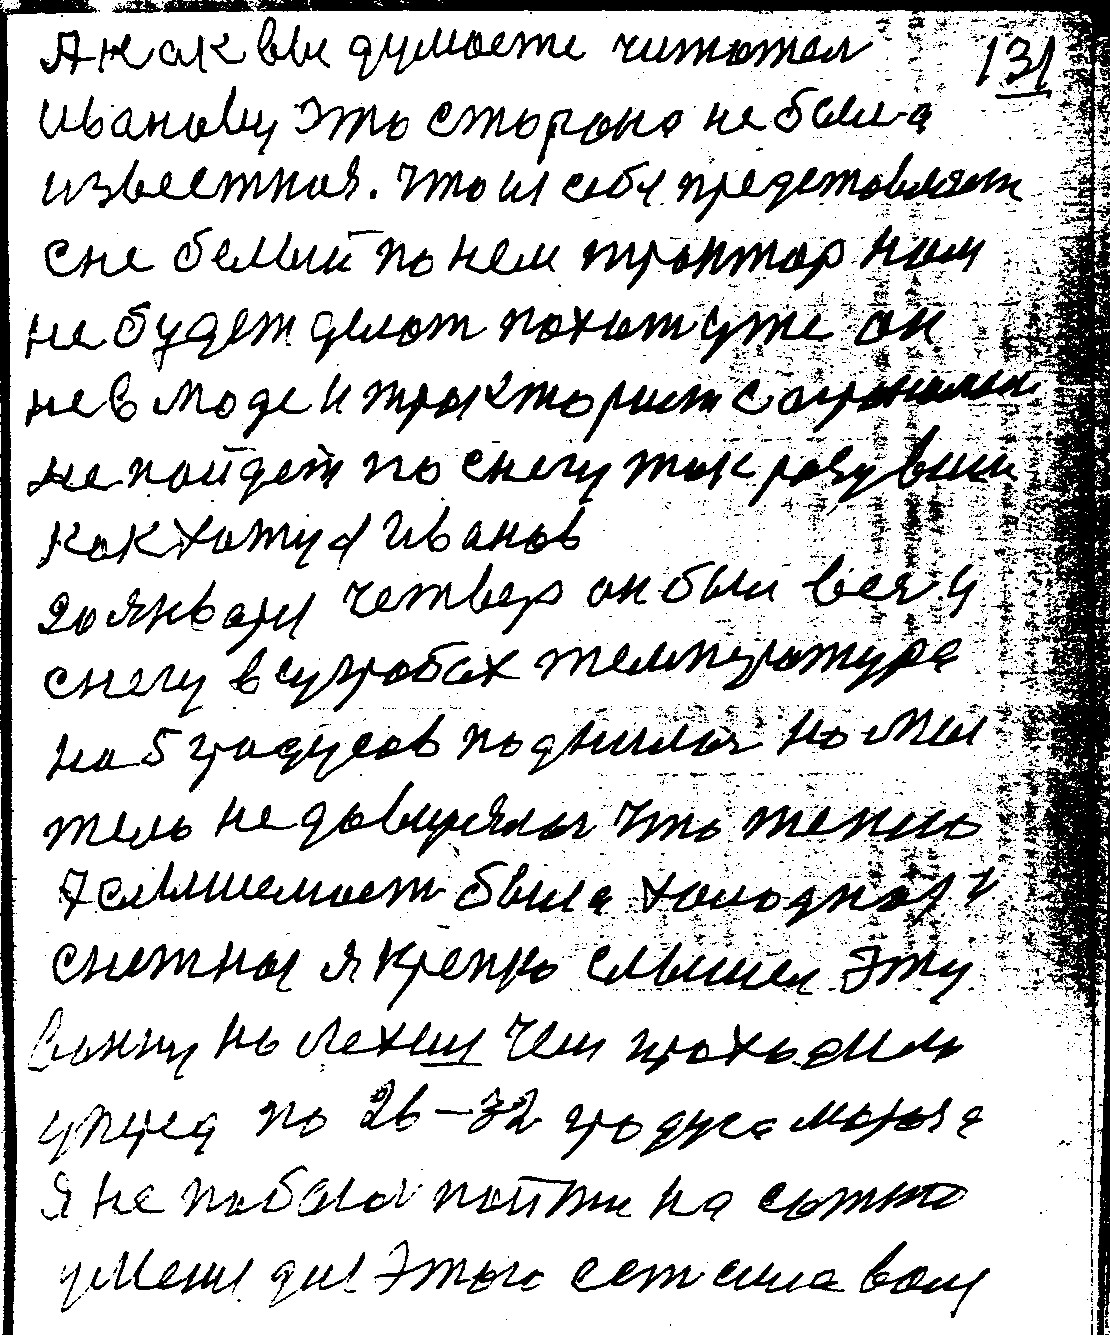 А как вы думаете читател 131
Иванову эта сторона не была
известная. Что из себя представляет
снег белый по нем трактор нам
не будет делат пахат уже он
не в моде и тракторист с агрономом
не пойдет по снегу так разувши
как хожу я Иванов
20 января четвер он был весь у
снегу в сугробах температура
на 5 градусов поднялас но мы
тело не доверялос что тепло
А слышемост была холодная и
снежная я крепко слышел эту
ванну но легши чем проходило
упред по 26-32 градуса мороза
Я не побоялся пойти на
у меня для этого ест сила вам